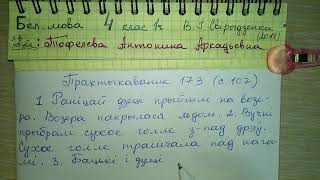 Бел. мова 4 клас 1ч В. І. Свірыдзенка
: Тофелева Антонина Аркадьевна (2018)
Практыкаванне 173 (с. 107)
1. Раніцай дзеці прыйшлі на возе-
ра. Возера пакрылася льдом. 2. Вучні
прыбралі сухое голле з-пад дрэў.
Сухое голле трашчала пад нага-
мі. 3. Бацькі і дзеці